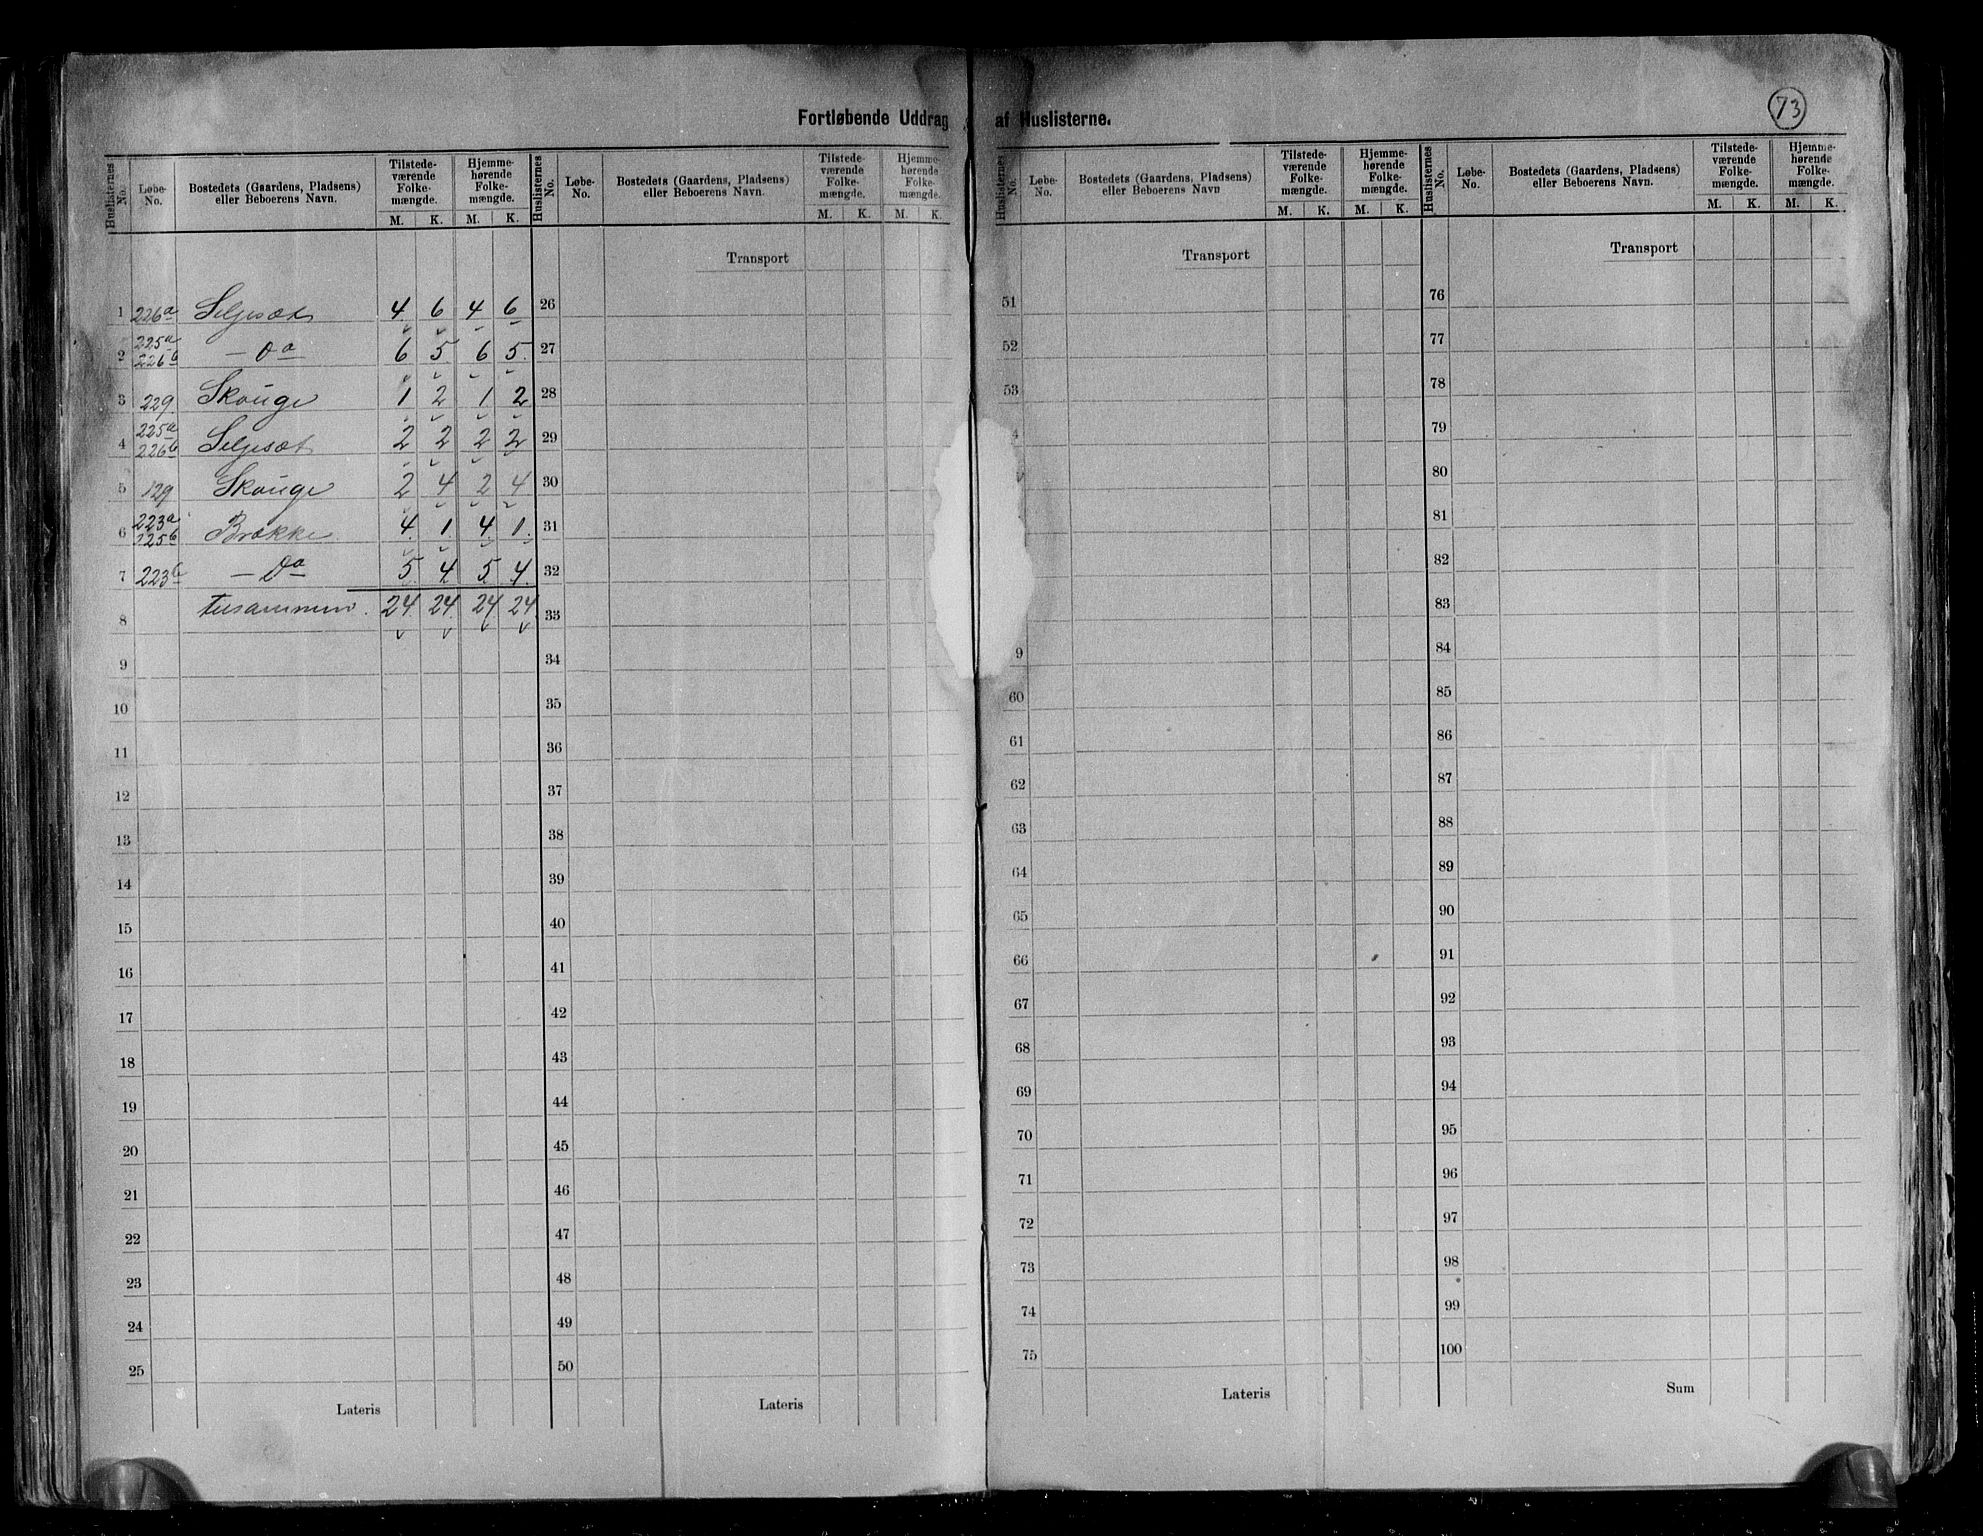 Fortløbende Uddrag af Huslisterne.
73
Huslisternes No. | Løbe-No. | Bostedets (Gaardens, Pladsens) eller Beboerens Navn. | Tilstedeværende Folkemængde. M. K. | Hjemmehørende Folkemængde. M. K.
1 226a Seljesæt 4 6 4 6
2 225a 226b — Do 6 5 6 5
3 229 Skouge 1 2 1 2
4 225a 226b Seljesæt 2 2 2 2
5 129 Skouge 2 4 2 4
6 223a 225b Brække 4 1 4 1
7 223b — Do 5 4 5 4
8 tilsammen 24 24 24 24
9
10
11
12
13
14
15
16
17
18
19
20
21
22
23
24
25
Lateris
Huslisternes No. | Løbe-No. | Bostedets (Gaardens, Pladsens) eller Beboerens Navn. | Tilstedeværende Folkemængde. M. K. | Hjemmehørende Folkemængde. M. K.
Transport
26
27
28
29
30
31
32
33
34
35
36
37
38
39
40
41
42
43
44
45
46
47
48
49
50
Lateris
Huslisternes No. | Løbe-No. | Bostedets (Gaardens, Pladsens) eller Beboerens Navn | Tilstedeværende Folkemængde. M. K. | Hjemmehørende Folkemængde. M. K.
Transport
51
52
53
4
9
60
61
62
63
64
65
66
67
68
69
70
71
72
73
74
75
Lateris
Huslisternes No. | Løbe-No. | Bostedets (Gaardens, Pladsens) eller Beboerens Navn. | Tilstedeværende Folkemængde. M. K. | Hjemmehørende Folkemængde. M. K.
Transport
76
77
78
79
80
81
82
83
84
85
86
87
88
89
90
91
92
93
94
95
96
97
98
99
100
Sum